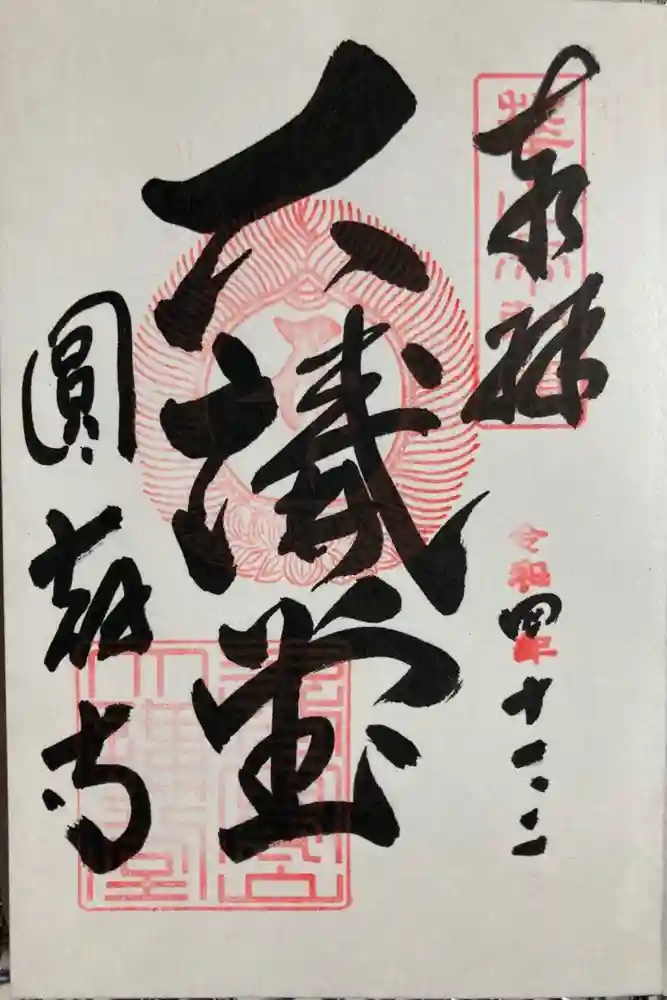 奉拝
令和四年十一、二
大講堂
圓教寺